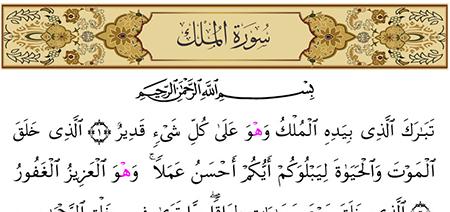 سُورَةُ المُلْكِ
بِسْمِ اللَّهِ الرَّحْمَٰنِ الرَّحِيمِ
تَبَٰرَكَ ٱلَّذِى بِيَدِهِ ٱلْمُلْكُ وَهُوَ عَلَىٰ كُلِّ شَىْءٍ قَدِيرٌ ﴿١﴾ ٱلَّذِى خَلَقَ
ٱلْمَوْتَ وَٱلْحَيَوٰةَ لِيَبْلُوَكُمْ أَيُّكُمْ أَحْسَنُ عَمَلًا ۚ وَهُوَ ٱلْعَزِيزُ ٱلْغَفُورُ